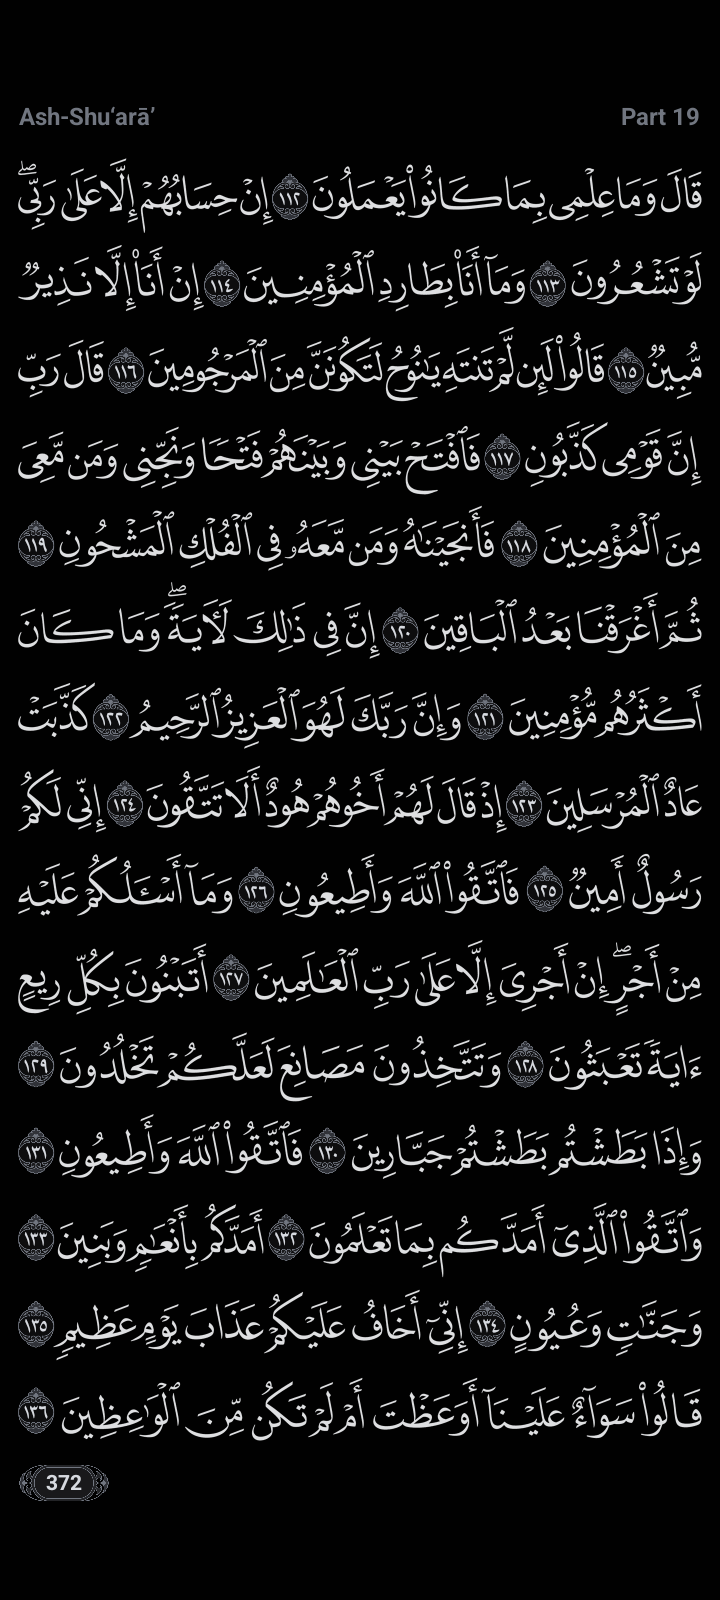 Ash-Shu‘arā’
Part 19
قَالَ وَمَا عِلْمِى بِمَا كَانُوا۟ يَعْمَلُونَ ١١٢ إِنْ حِسَابُهُمْ إِلَّا عَلَىٰ رَبِّى ۖ
لَوْ تَشْعُرُونَ ١١٣ وَمَآ أَنَا۠ بِطَارِدِ ٱلْمُؤْمِنِينَ ١١٤ إِنْ أَنَا۠ إِلَّا نَذِيرٌ
مُّبِينٌ ١١٥ قَالُوا۟ لَئِن لَّمْ تَنتَهِ يَـٰنُوحُ لَتَكُونَنَّ مِنَ ٱلْمَرْجُومِينَ ١١٦ قَالَ رَبِّ
إِنَّ قَوْمِى كَذَّبُونِ ١١٧ فَٱفْتَحْ بَيْنِى وَبَيْنَهُمْ فَتْحًا وَنَجِّنِى وَمَن مَّعِىَ
مِنَ ٱلْمُؤْمِنِينَ ١١٨ فَأَنجَيْنَـٰهُ وَمَن مَّعَهُۥ فِى ٱلْفُلْكِ ٱلْمَشْحُونِ ١١٩
ثُمَّ أَغْرَقْنَا بَعْدُ ٱلْبَاقِينَ ١٢٠ إِنَّ فِى ذَٰلِكَ لَـَٔايَةً ۖ وَمَا كَانَ
أَكْثَرُهُم مُّؤْمِنِينَ ١٢١ وَإِنَّ رَبَّكَ لَهُوَ ٱلْعَزِيزُ ٱلرَّحِيمُ ١٢٢ كَذَّبَتْ
عَادٌ ٱلْمُرْسَلِينَ ١٢٣ إِذْ قَالَ لَهُمْ أَخُوهُمْ هُودٌ أَلَا تَتَّقُونَ ١٢٤ إِنِّى لَكُمْ
رَسُولٌ أَمِينٌ ١٢٥ فَٱتَّقُوا۟ ٱللَّهَ وَأَطِيعُونِ ١٢٦ وَمَآ أَسْـَٔلُكُمْ عَلَيْهِ
مِنْ أَجْرٍ ۖ إِنْ أَجْرِىَ إِلَّا عَلَىٰ رَبِّ ٱلْعَـٰلَمِينَ ١٢٧ أَتَبْنُونَ بِكُلِّ رِيعٍ
ءَايَةً تَعْبَثُونَ ١٢٨ وَتَتَّخِذُونَ مَصَانِعَ لَعَلَّكُمْ تَخْلُدُونَ ١٢٩
وَإِذَا بَطَشْتُم بَطَشْتُمْ جَبَّارِينَ ١٣٠ فَٱتَّقُوا۟ ٱللَّهَ وَأَطِيعُونِ ١٣١
وَٱتَّقُوا۟ ٱلَّذِىٓ أَمَدَّكُم بِمَا تَعْلَمُونَ ١٣٢ أَمَدَّكُم بِأَنْعَـٰمٍ وَبَنِينَ ١٣٣
وَجَنَّـٰتٍ وَعُيُونٍ ١٣٤ إِنِّىٓ أَخَافُ عَلَيْكُمْ عَذَابَ يَوْمٍ عَظِيمٍ ١٣٥
قَالُوا۟ سَوَآءٌ عَلَيْنَآ أَوَعَظْتَ أَمْ لَمْ تَكُن مِّنَ ٱلْوَٰعِظِينَ ١٣٦
372